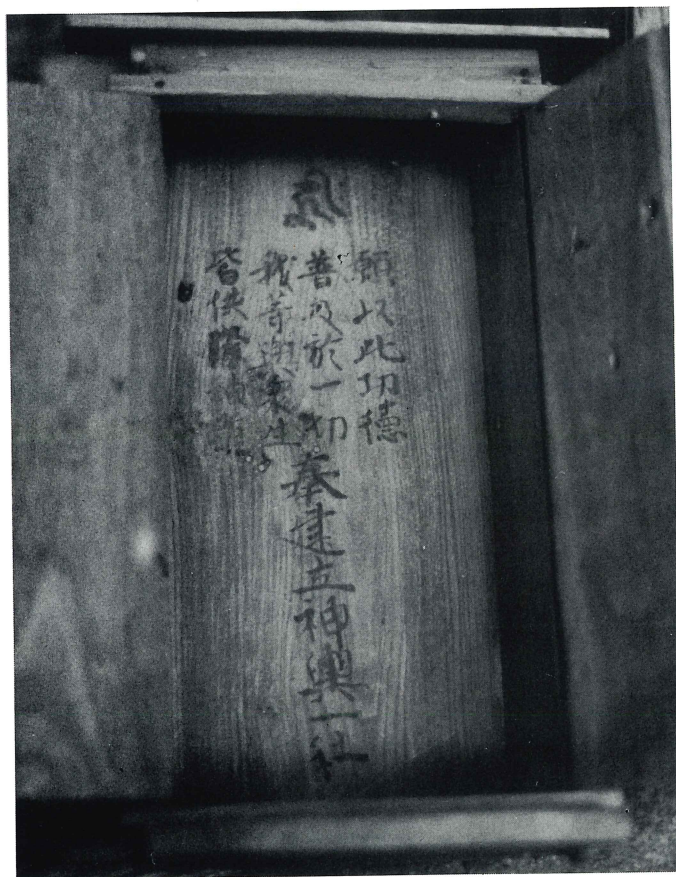 願以此功徳
普及於一切
我等與衆生
皆
奉建立神輿一社